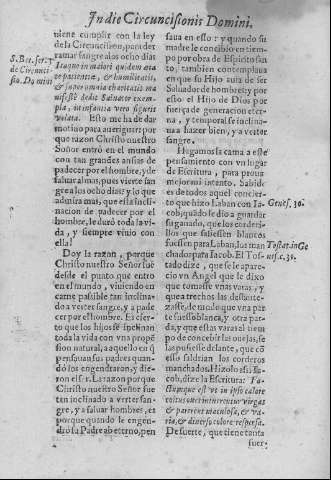 In die Circuncisionis Domini.
S. Ber. ser. 1
de Circunci-
sio. Domini
viene cumplir con la ley
de la Circuncision, para der
ramar sangre a los ocho dias
maiori quidem sua
patientia, & humilitatis,
& supereminens charitatis ma
nifeste dedit Salvator exem-
pla, in infantia vero figuris
velata. Esto me ha de dar
motivo para averiguar: por
que razon Christo nuestro
Señor entrò en el mundo
con tan grandes ansias de
padecer por el hombre, y de
salvar almas, pues vierte san
gre a los ocho dias: y lo que
admira mas, que esta inclina
nacion de padecer por el
hombre, le durò toda la vi-
da, y siempre vivio con
ella?
Doy la razon, porque
Christo nuestro Señor fue
desde el punto que entrò
en el mundo, viviendo en
carne passible tan inclina-
do a verter sangre, y a pade
cer por el hombre. Es cier-
to que los hijos se inclinan
toda la vida con vna propè
sion natural, a aquello en q̃
pensavan sus padres quan-
dò los engendraron, y die-
ron el ser. La razon porque
Christo nuestro Señor fue
tan inclinado a verter san-
gre, y a salvar hombres, es
porque quando le engen-
drò su Padre ab eterno, pen
sava en esto: y quando su
madre le concibio en tiem-
po por obra de Espiritu san
to, tambien contemplava
en que su Hijo avia de ser
Salvador de hombres: y por
esso el Hijo de Dios por
fuerça de generacion eter-
na, y temporal se inclina-
na hazer bien, y a verter
sangre.
Hagamos la cama a este
pensamiento con vn lugar
de Escritura, para prova
mejor mi intento. Sabido
es de todos aquel concier-
to que hizo Laban con Ia-
cob, quãdo se dio a guardar
su ganado, que los corderi-
llos que saliessen blancos
fuessen para Laban, los man
chados para Iacob. El Tos-
tado dize, que se le apare-
cio vn Angel que le dixo
que tomasse vnas varas, y
que a trechos las descorte-
zasse, de modo que vna par
te fuesse blanca, y otra par-
da, y que estas varas al tiem
po de concebir las ovejas, se
las pusiesse delante, que cõ
esso saldrian los corderos
manchados. Hizolo assi Ia-
cob, dize la Escritura: Fa-
ctumque est vt in ipso calore
coitus oves intuerentur virgas
& parerent maculosa, & va-
ria, & diverso colore respersa.
De suerte, que tiene tanta
fuer-
Genes. 30.
Tostat. in Ge
nes. c. 31.